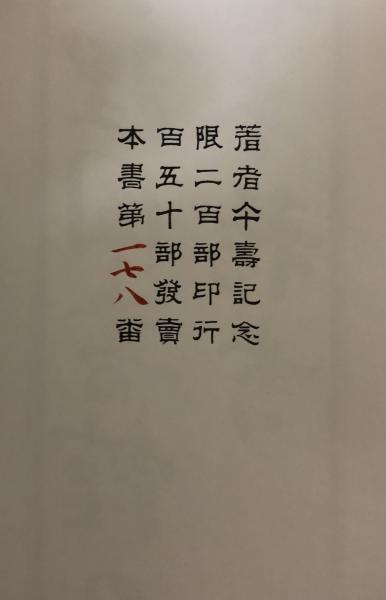 著者仐壽記念
限二百部印行
百五十部發賣
本書第一七八番